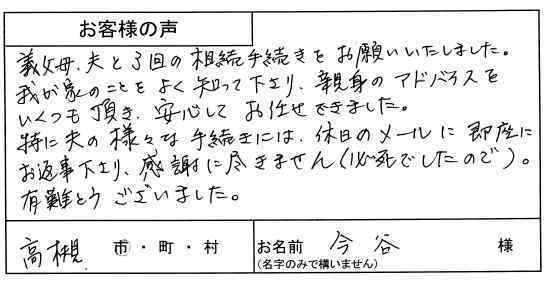 お客様の声
義父母、夫と3回の相続手続きをお願いいたしました。
我が家のことをよく知って下さり、親身のアドバイスを
いくつも頂き、安心してお任せできました。
特に夫の様々な手続きには、休日のメールに即座に
お返事下さり、感謝に尽きません(必死でしたので)。
有難とうございました。
高槻 市・町・村 お名前 今谷 様
(名字のみで構いません)